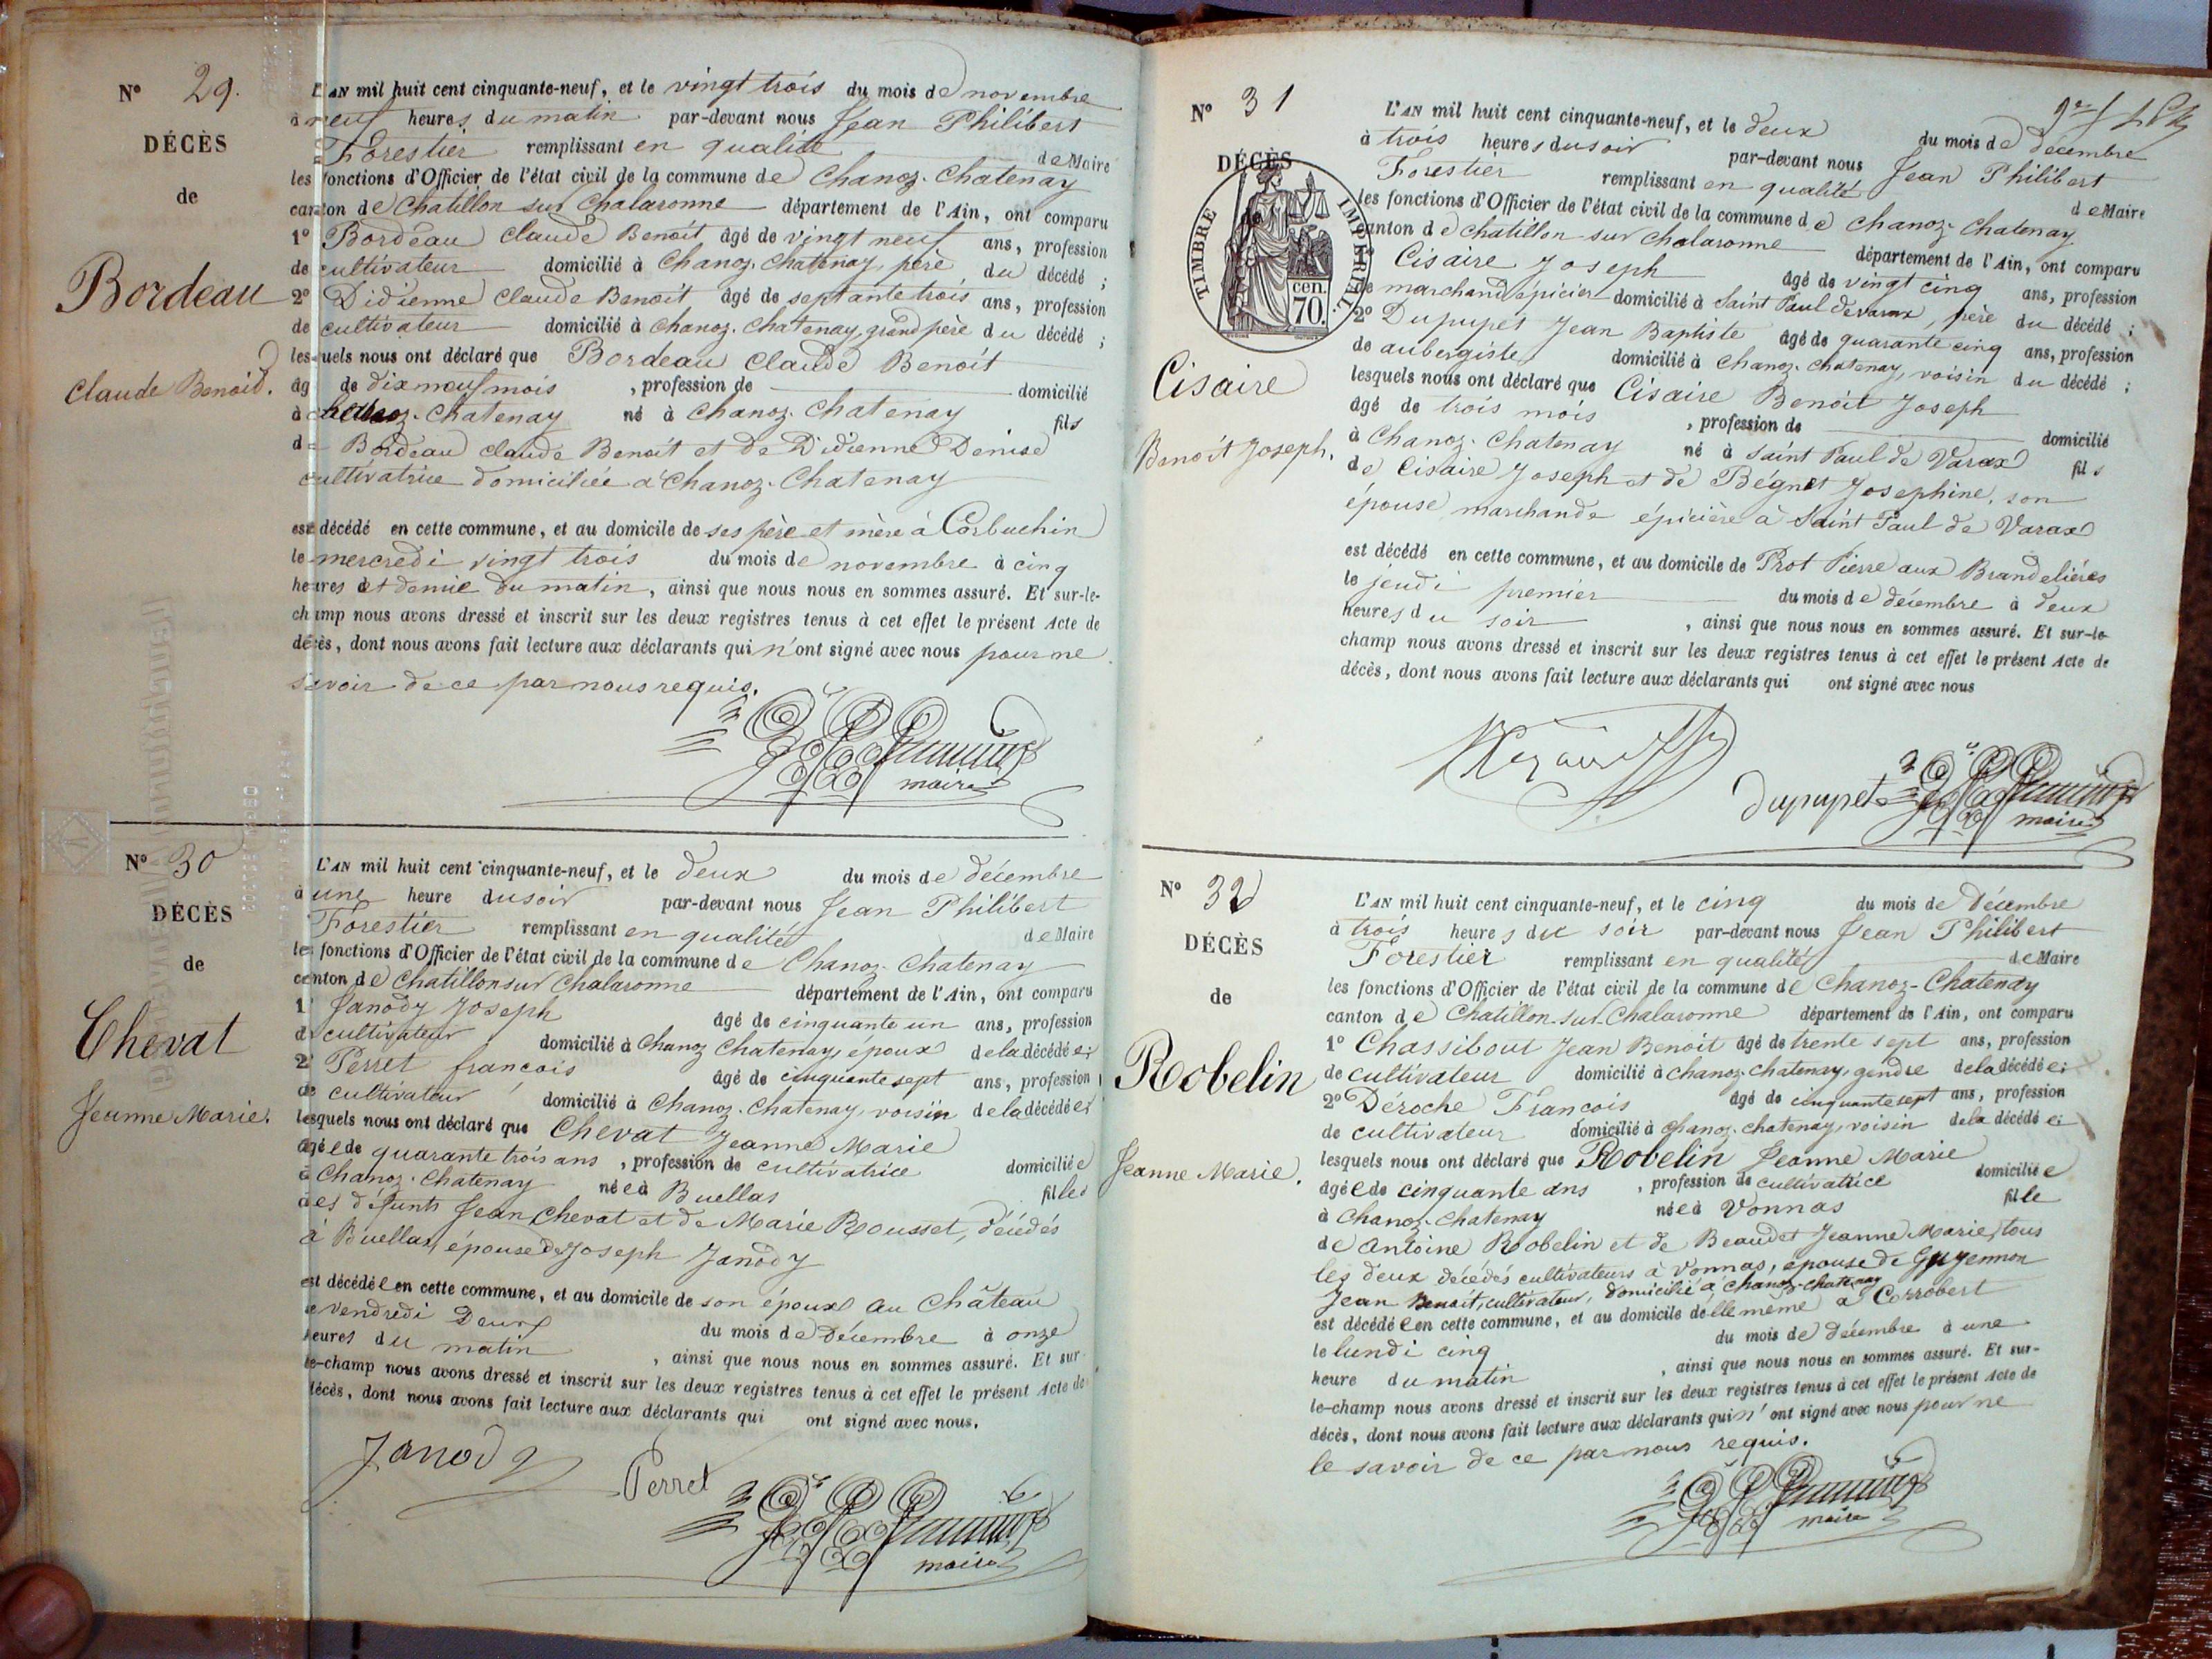 N° 29.
DÉCÈS
de
Bordeau
Claude Benoit.
L'AN mil huit cent cinquante-neuf, et le vingt trois du mois de novembre
à neuf heures du matin par-devant nous Jean Philibert
Forestier remplissant en qualité de Maire
les fonctions d'Officier de l'état civil de la commune de Chanoz-Chatenay
canton de Chatillon sur Chalaronne département de l'Ain, ont comparu
1° Bordeau Claude Benoit âgé de vingt neuf ans, profession
de cultivateur domicilié à Chanoz-Chatenay, père du décédé ;
2° Didienne Claude Benoit âgé de septante trois ans, profession
de cultivateur domicilié à Chanoz-Chatenay, grand père du décédé ;
lesquels nous ont déclaré que Bordeau Claude Benoit
âgé de dix neuf mois , profession de domicilié
à Chanoz-Chatenay né à Chanoz-Chatenay fils
de Bordeau Claude Benoit et de Didienne Denise
cultivatrice domiciliée à Chanoz-Chatenay
est décédé en cette commune, et au domicile de ses père et mère à Corbuchin
le mercredi vingt trois du mois de novembre à cinq
heures et demie du matin, ainsi que nous nous en sommes assuré. Et sur-le-
champ nous avons dressé et inscrit sur les deux registres tenus à cet effet le présent Acte de
décès, dont nous avons fait lecture aux déclarants qui n'ont signé avec nous pour ne
savoir de ce par nous requis.
maire
N° 30
DÉCÈS
de
Chevat
Jeanne Marie.
L'AN mil huit cent cinquante-neuf, et le deux du mois de décembre
à une heure du soir par-devant nous Jean Philibert
Forestier remplissant en qualité de Maire
les fonctions d'Officier de l'état civil de la commune de Chanoz-Chatenay
canton de Chatillon sur Chalaronne département de l'Ain, ont comparu
1° Janody Joseph âgé de cinquante un ans, profession
de cultivateur domicilié à Chanoz Chatenay, époux de la décédée ;
2° Perret françois âgé de cinquante sept ans, profession
de cultivateur domicilié à Chanoz-Chatenay, voisin de la décédée ;
lesquels nous ont déclaré que Chevat Jeanne Marie
âgée de quarante trois ans , profession de cultivatrice domiciliée
à Chanoz-Chatenay née à Buellas fille
des défunts Jean Chevat et de Marie Rousset, décédés
à Buellas, épouse de Joseph Janody
est décédée en cette commune, et au domicile de son époux au Château
le vendredi Deux du mois de Décembre à onze
heures du matin , ainsi que nous nous en sommes assuré. Et sur-
le-champ nous avons dressé et inscrit sur les deux registres tenus à cet effet le présent Acte de
décès, dont nous avons fait lecture aux déclarants qui ont signé avec nous.
Janody
Perret
maire
N° 31
DÉCÈS
de
TIMBRE IMPÉRIAL
cen.
70.
Cisaire
Benoit Joseph.
L'AN mil huit cent cinquante-neuf, et le deux du mois de décembre
à trois heures du soir par-devant nous Jean Philibert
Forestier remplissant en qualité de Maire
les fonctions d'Officier de l'état civil de la commune de Chanoz-Chatenay
canton de Chatillon sur Chalaronne département de l'Ain, ont comparu
Cisaire Joseph âgé de vingt cinq ans, profession
de marchand épicier domicilié à Saint Paul de varax, père du décédé ;
2° Dupupet Jean Baptiste âgé de quarante cinq ans, profession
de aubergiste domicilié à Chanoz-Chatenay, voisin du décédé ;
lesquels nous ont déclaré que Cisaire Benoit Joseph
âgé de trois mois , profession de domicilié
à Chanoz-Chatenay né à Saint Paul de Varax fils
de Cisaire Joseph et de Bégnet Josephine, son
épouse marchande épicière à Saint Paul de Varax
est décédé en cette commune, et au domicile de Prot Pierre aux Brandelières
le jeudi premier du mois de décembre à deux
heures du soir , ainsi que nous nous en sommes assuré. Et sur-le-
champ nous avons dressé et inscrit sur les deux registres tenus à cet effet le présent Acte de
décès, dont nous avons fait lecture aux déclarants qui ont signé avec nous
dupupet
maire
N° 32
DÉCÈS
de
Robelin
Jeanne Marie.
L'AN mil huit cent cinquante-neuf, et le cinq du mois de Décembre
à trois heures du soir par-devant nous Jean Philibert
Forestier remplissant en qualité de Maire
les fonctions d'Officier de l'état civil de la commune de Chanoz-Chatenay
canton de Chatillon-sur-Chalaronne département de l'Ain, ont comparu
1° Chassibout Jean Benoit âgé de trente sept ans, profession
de cultivateur domicilié à chanoz-chatenay, gendre de la décédée ;
2° Déroche François âgé de cinquante sept ans, profession
de cultivateur domicilié à chanoz-chatenay, voisin de la décédée ;
lesquels nous ont déclaré que Robelin Jeanne Marie
âgée de cinquante ans , profession de cultivatrice domiciliée
à Chanoz-Chatenay née à Vonnas fille
de Antoine Robelin et de Beaudet Jeanne Marie, tous
les deux décédés cultivateurs à Vonnas, épouse de Guyennon
Jean Benoit, cultivateur, domicilié à Chanoz-Chatenay
est décédée en cette commune, et au domicile d'elle même à Corrobert
le lundi cinq du mois de Décembre à une
heure du matin , ainsi que nous nous en sommes assuré. Et sur-
le-champ nous avons dressé et inscrit sur les deux registres tenus à cet effet le présent Acte de
décès, dont nous avons fait lecture aux déclarants qui n'ont signé avec nous pour ne
le savoir de ce par nous requis.
maire